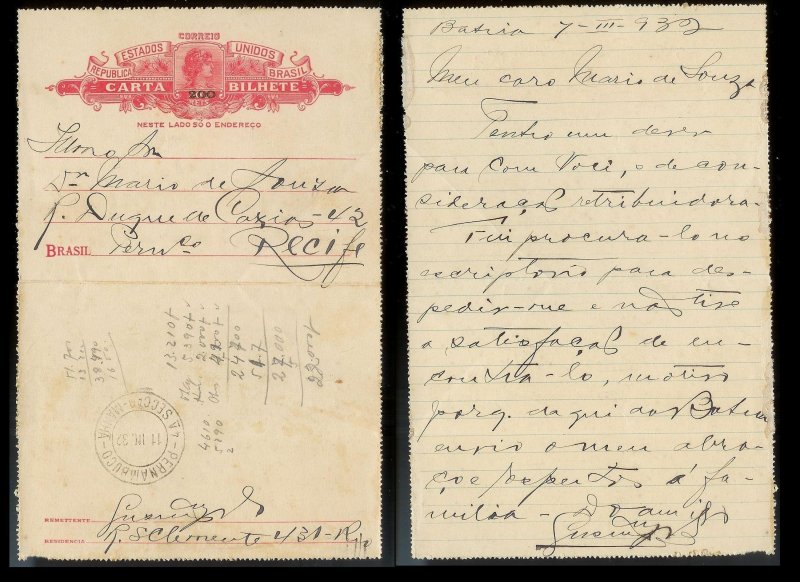 CORREIO
ESTADOS UNIDOS
REPUBLICA BRASIL
CARTA 200 BILHETE
RÉIS
NESTE LADO SÓ O ENDEREÇO
Illmo Sr.
Dr Mario de Souza
R. Duque de Caxias - 42
BRASIL Pernco Recife
13.210
5.390
24.700
27.000
4
4610
5390
2
38.990
PERNAMBUCO
11 III 32
REMETTENTE
RESIDENCIA R. S Clemente 431 - Rio
Bahia 7-III-932
Meu caro Mario de Souza
Tenho um dever
para com Você, o de con-
sideração retribuidora.
Fui procura-lo no
escriptorio para des-
pedir-me e não tive
a satisfação de en-
contra-lo, motivo
porq. daqui da Bahia
envio o meu abra-
ço e respeitos á fa-
milia - Do amigo